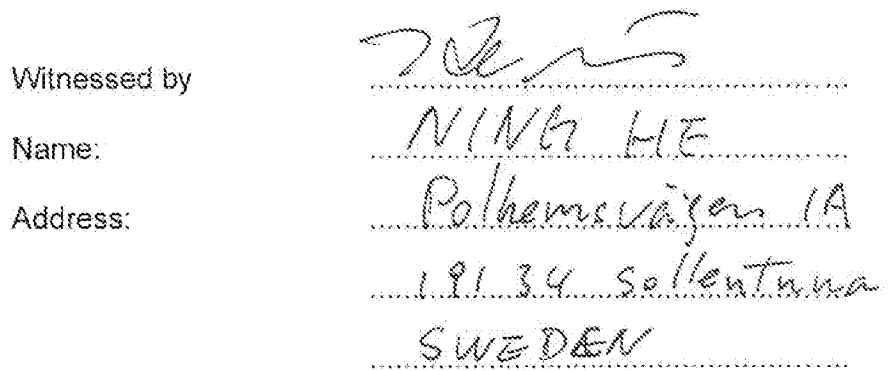 Witnessed by
Name: NING HE
Address: Polhemsvägen 1A
191 34 Sollentuna
SWEDEN